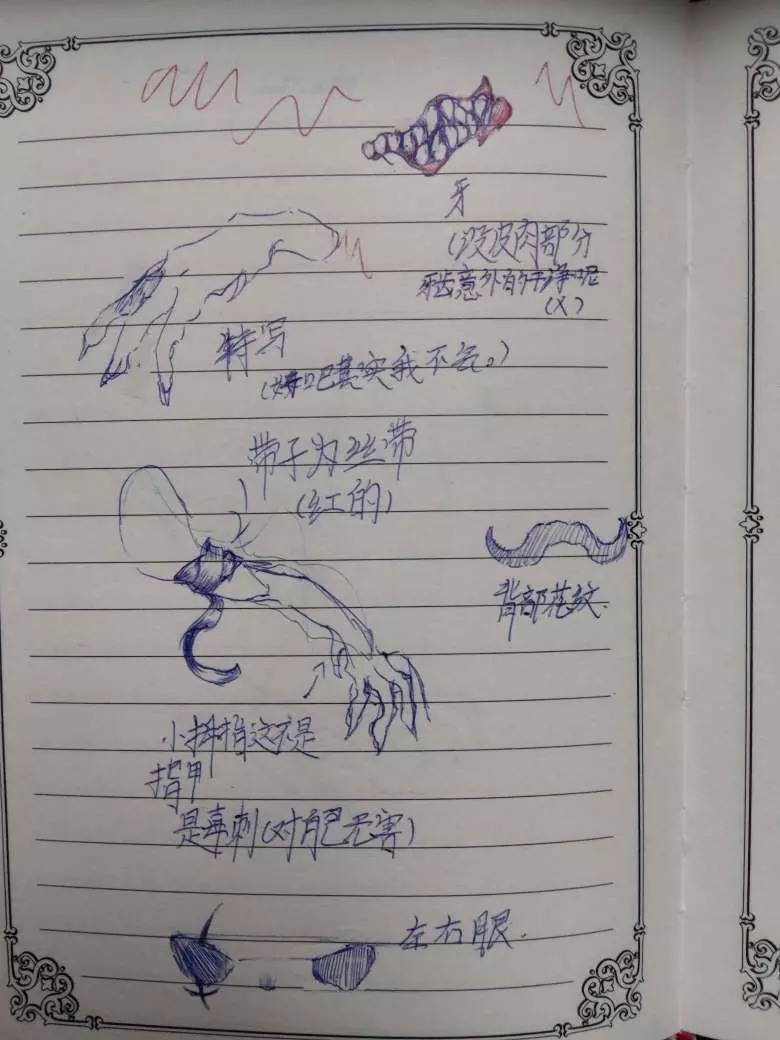 牙
(没皮肉部分
牙齿意外的干净呢
(X)
特写
(好吧其实我不会。)
带子为丝带
(红的)
背部花纹.
小拇指这不是
指甲
是毒刺(对自己无害)
左右眼.